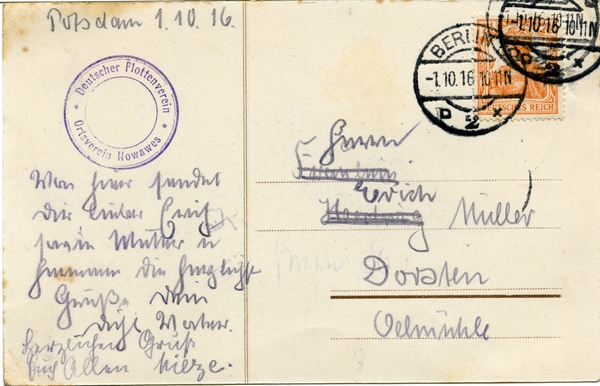 Potsdam 1.10.16.
Deutscher Flottenverein
Ortsverein Nowawes
Von hier sendet
Dir lieber
Mutter u
die herzlichst
Grüße Dein
Werner.
Herzlichen Gruß
Euch Allen
BERLIN
-1.10.16 10-11N
P 2 x
-1.10.16 10-11N
2 x
DEUTSCHES REICH
Herrn
Erich
Müller
Dorsten
Oelmühle